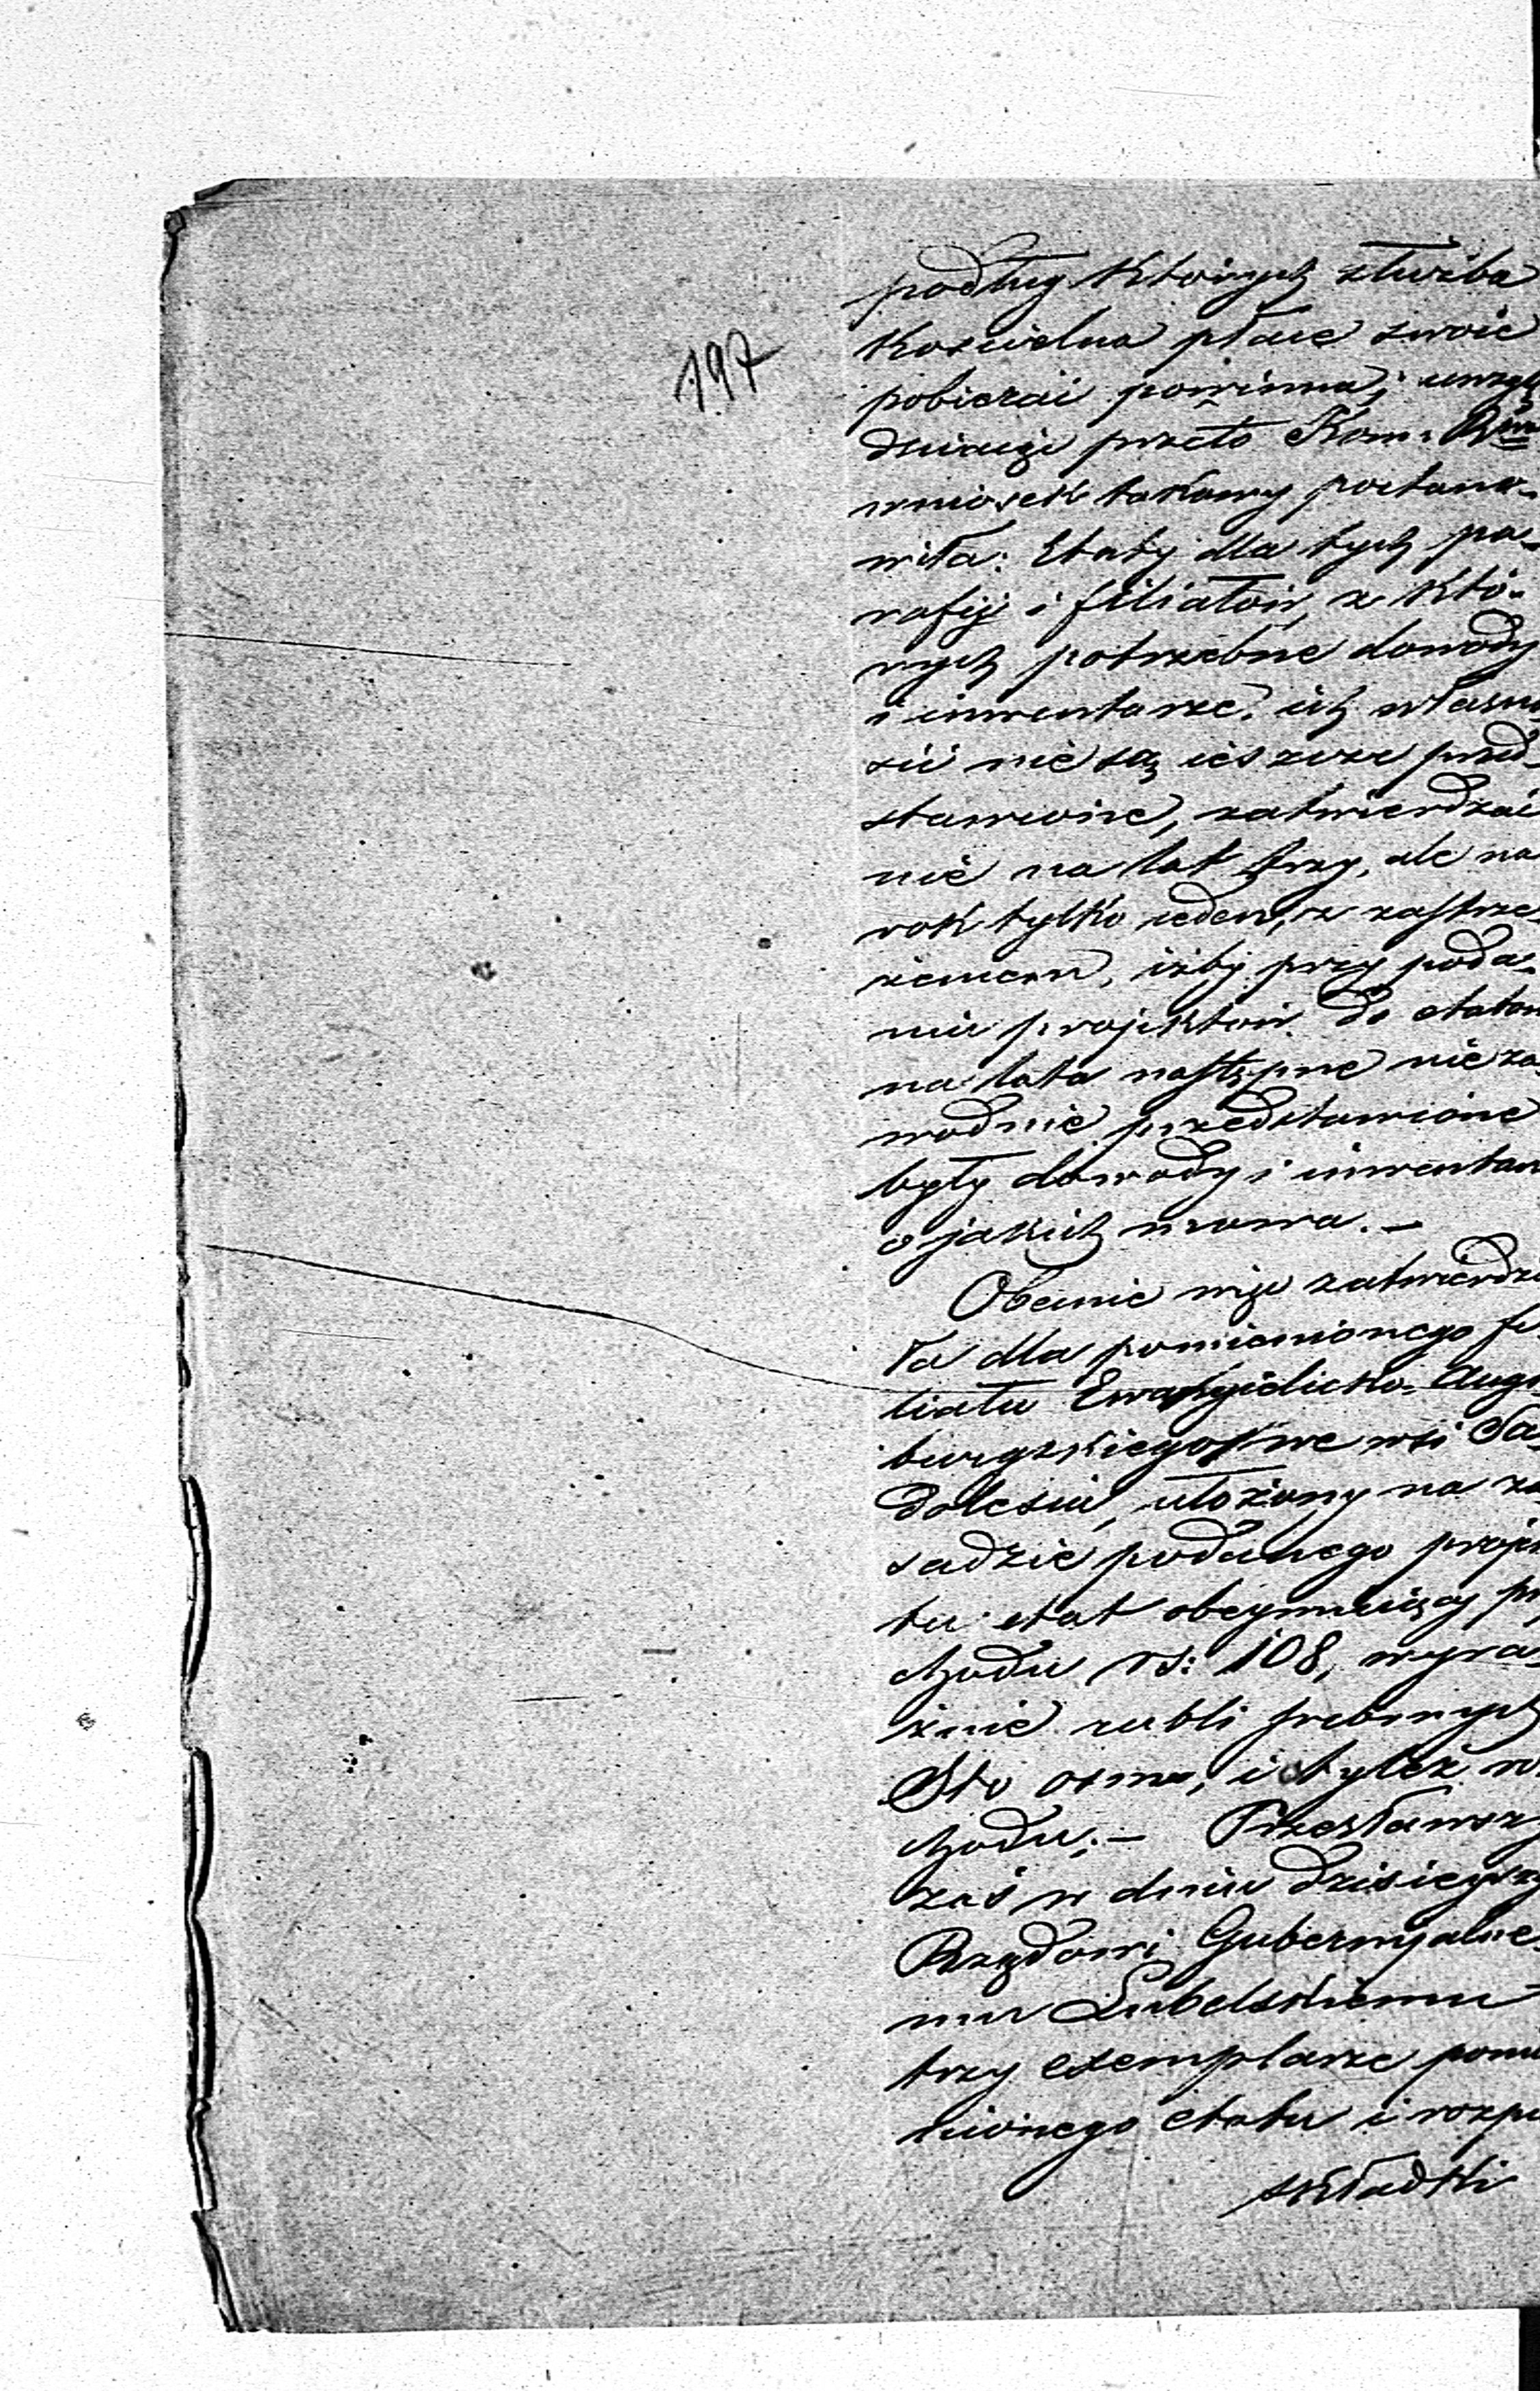 197
podług których służba
Kościelna płacę swoie
pobierać powinna; uwzglę
dniaiąc przeto Kom: Rząd
wniosek takowy, postano-
wiła: Etaty dla tych pa-
rafij i filiałów, z któ-
rych potrzebne dowody
i inwentarze ich własno
ści nie są ieszcze przed-
stawione, zatwierdzać
nie na lat trzy, ale na
rok tylko ieden, z zastrze
żeniem, iżby przy poda-
niu projektów do etatów
na lata następne nieza-
wodnie przedstawione
były dowody i inwentarz
o jakich mowa. —
Obecnie więc zatwierdzi
ła dla pomienionego fi
liału Ewangielicko-Augs
burgskiego we wsi Sa
dolesiu, ułożony na za
sadzie podanego projek
tu etat obeymuiący przy
chodu rs: 108, wyra-
źnie rubli srebrnych
Sto osm, i tyleż ro
chodu; — Przesławszy
zaś w dniu dzisieyszy
Rządowi Gubernijalne
mu Lubelskiemu
trzy exemplarze pomie
nionego etatu i rozpi
składki